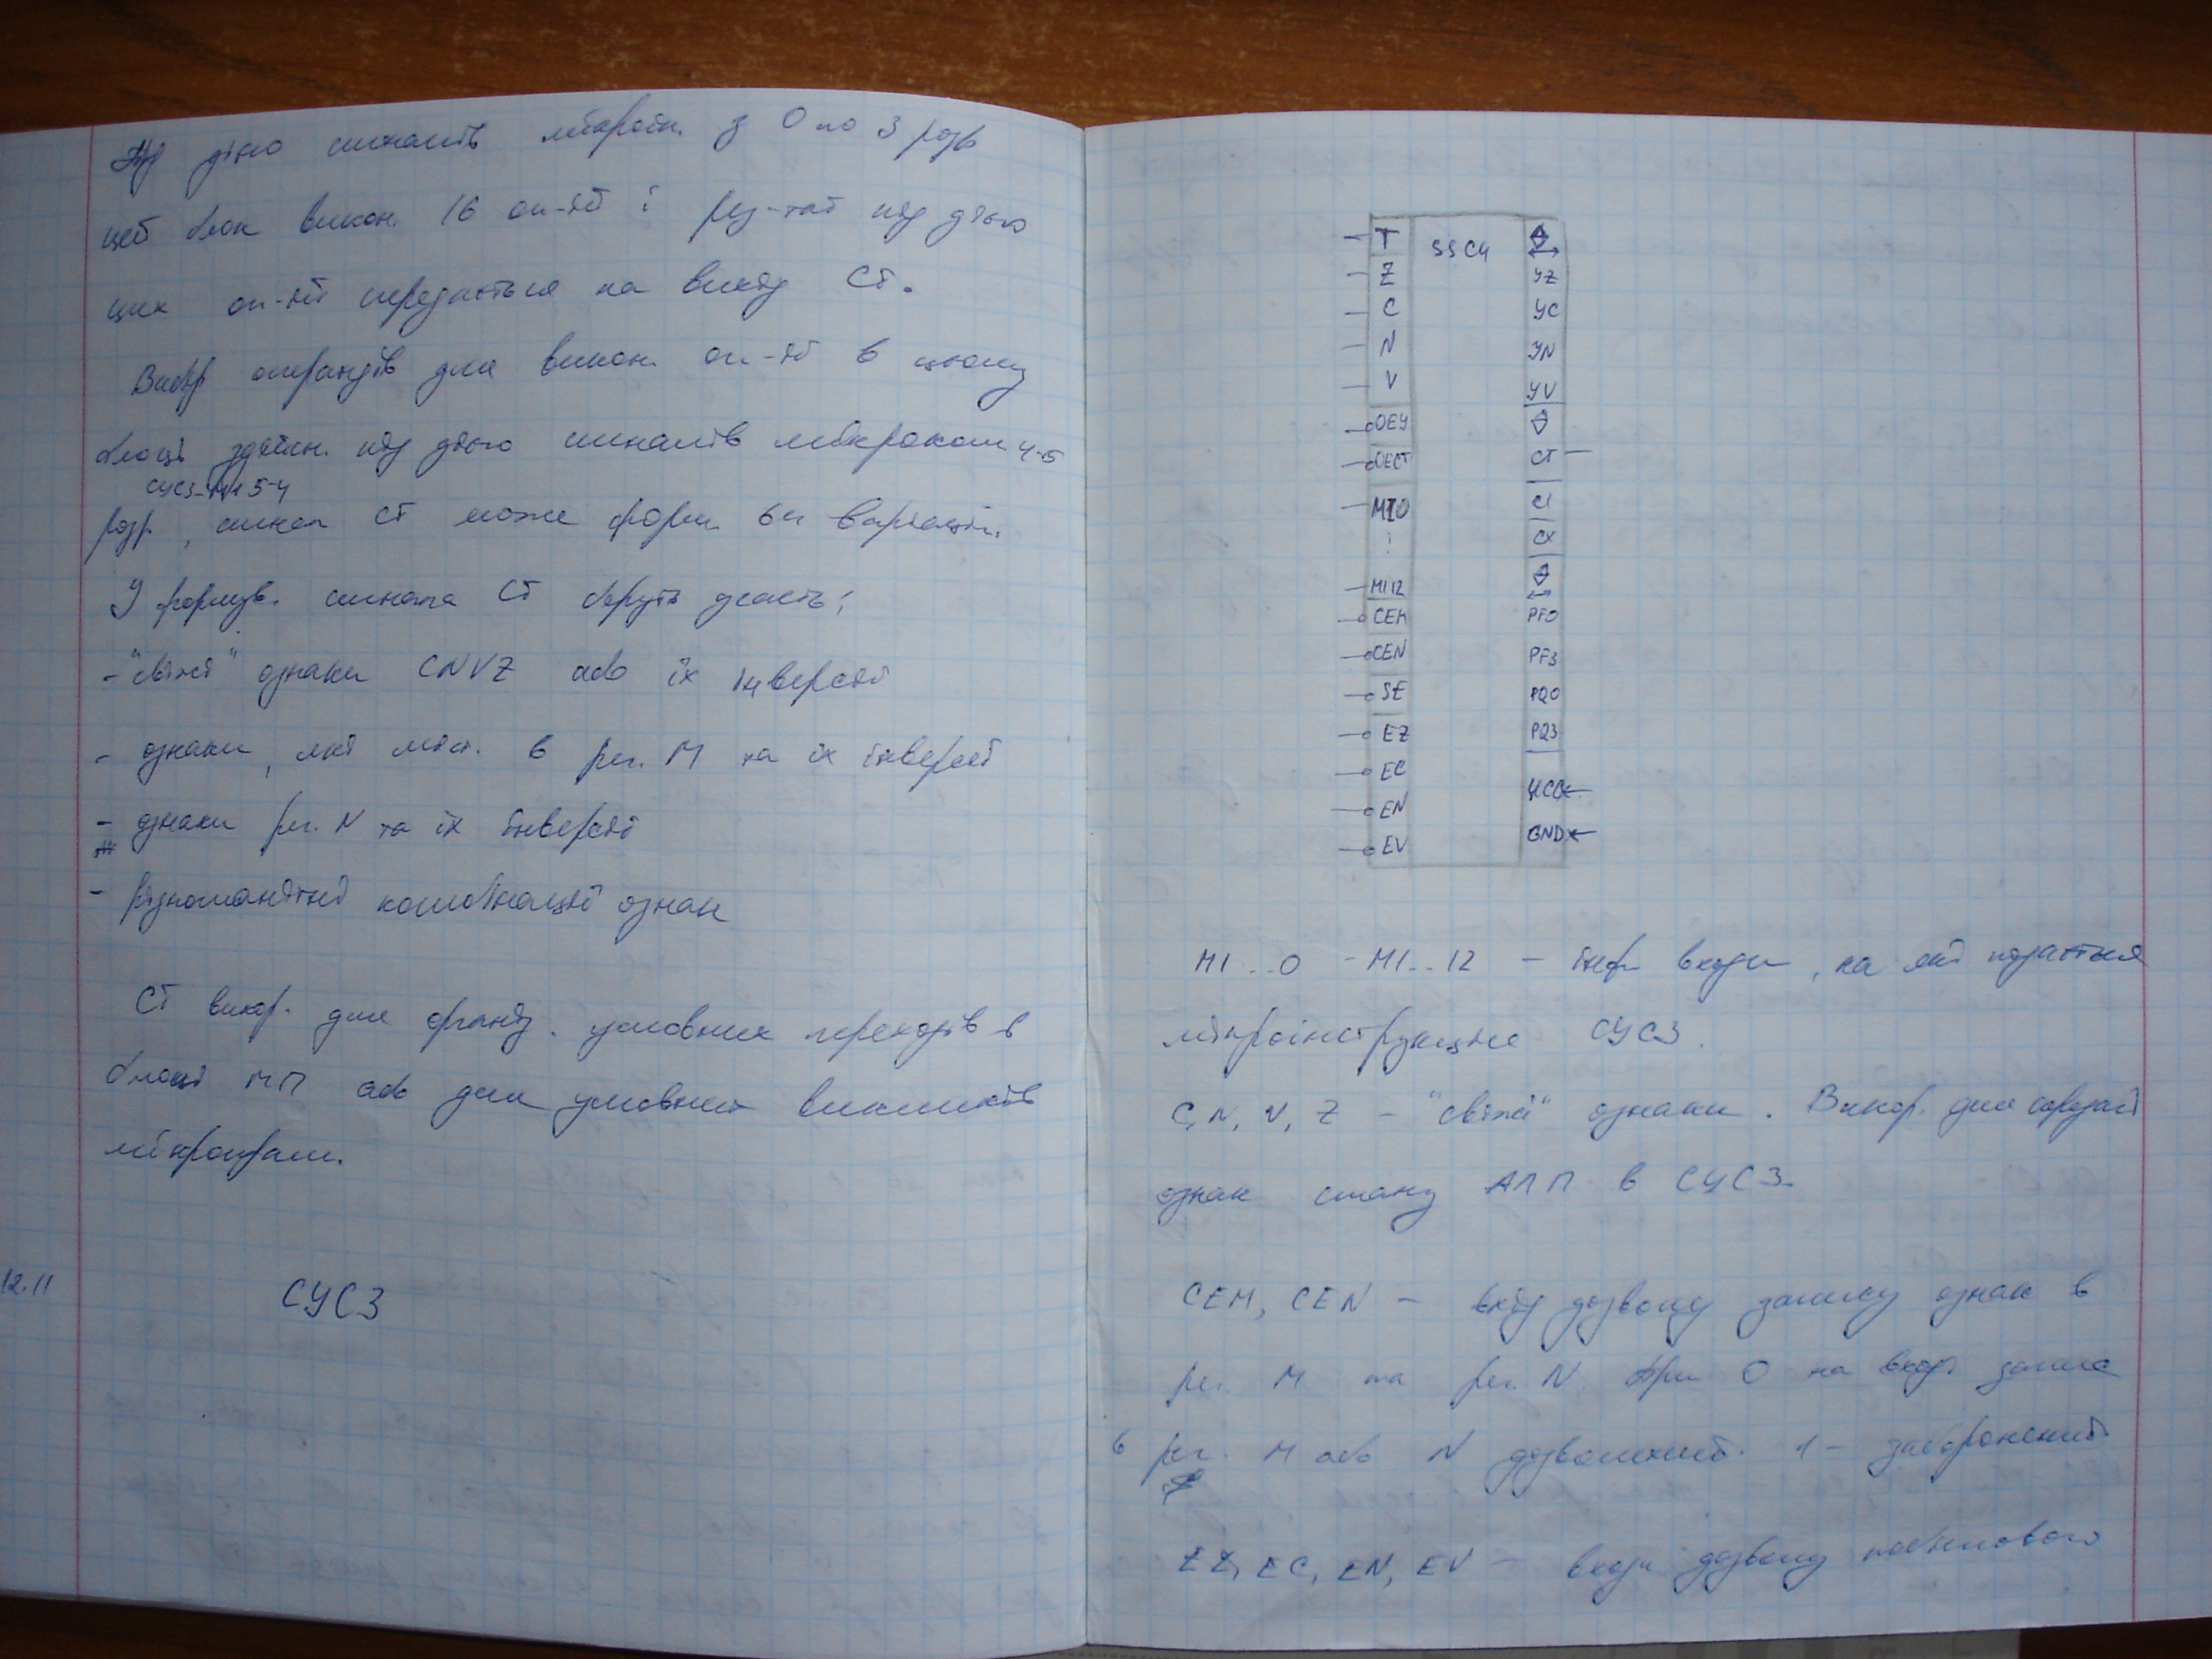 Під дією сигналів мікроін. з 0 по 3 розр
цей блок викон. 16 оп-ій і рез-тат під дією
цих оп-ій передається на вихід СТ.
Вибір операндів для викон. оп-ій в цьому
блоці здійсн. під дією сигналів мікроком 4-5
СУСЗ-МІ 5-4
розр, сигнал СТ може форм. 64 варіації.
У формув. сигнала СТ беруть участь:
- "свіжі" ознаки CNVZ або їх інверсії
- ознаки, які міст. в рег. М та їх інверсії
- ознаки рег. N та їх інверсії
- різноманітні комбінації ознак
СТ викор. для організ. умовних переходів в
блоці МП або для умовних викликів
мікропрограм.
12.11
СУСЗ
T SSC4
Z YZ
C YC
N YN
V YV
OEY
OECT CT
MI0 CI
⋮ CX
MI12
CEM PF0
CEN PF3
SE PQ0
EZ PQ3
EC UCC
EN
EV GND
MI..0 - MI..12 - інф. входи, на які подається
мікроінструкція СУСЗ.
C, N, V, Z - "свіжі" ознаки. Викор. для передачі
ознак стану АЛП в СУСЗ.
CEM, CEN - вхід дозволу запису ознак в
рег. М та рег. N. При 0 на вході запис
в рег. М або N дозволений. 1 - заборонений
EZ, EC, EN, EV - входи дозволу побітового